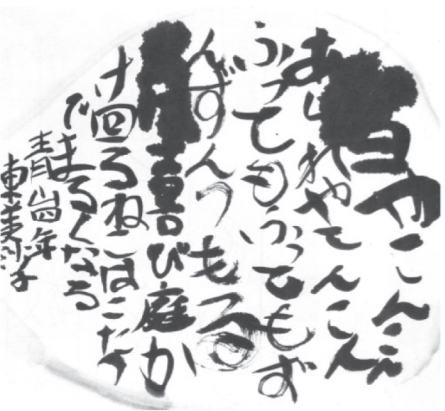 雪やこんこん
あられやこんこん
ふってもふってもず
んずんつもる
喜び庭か
け回るねこはこたつ
でまるくなる